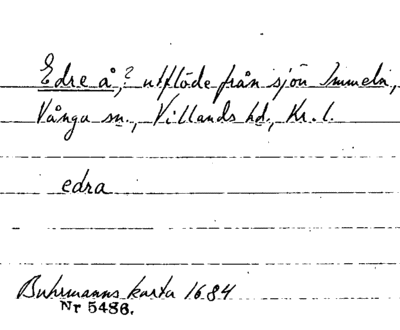 Edre å,? utflöde från sjön Immeln,
Vånga sn., Villands hd., Kr. l.
edra
Buhrmanns karta 1684
Nr 5486.